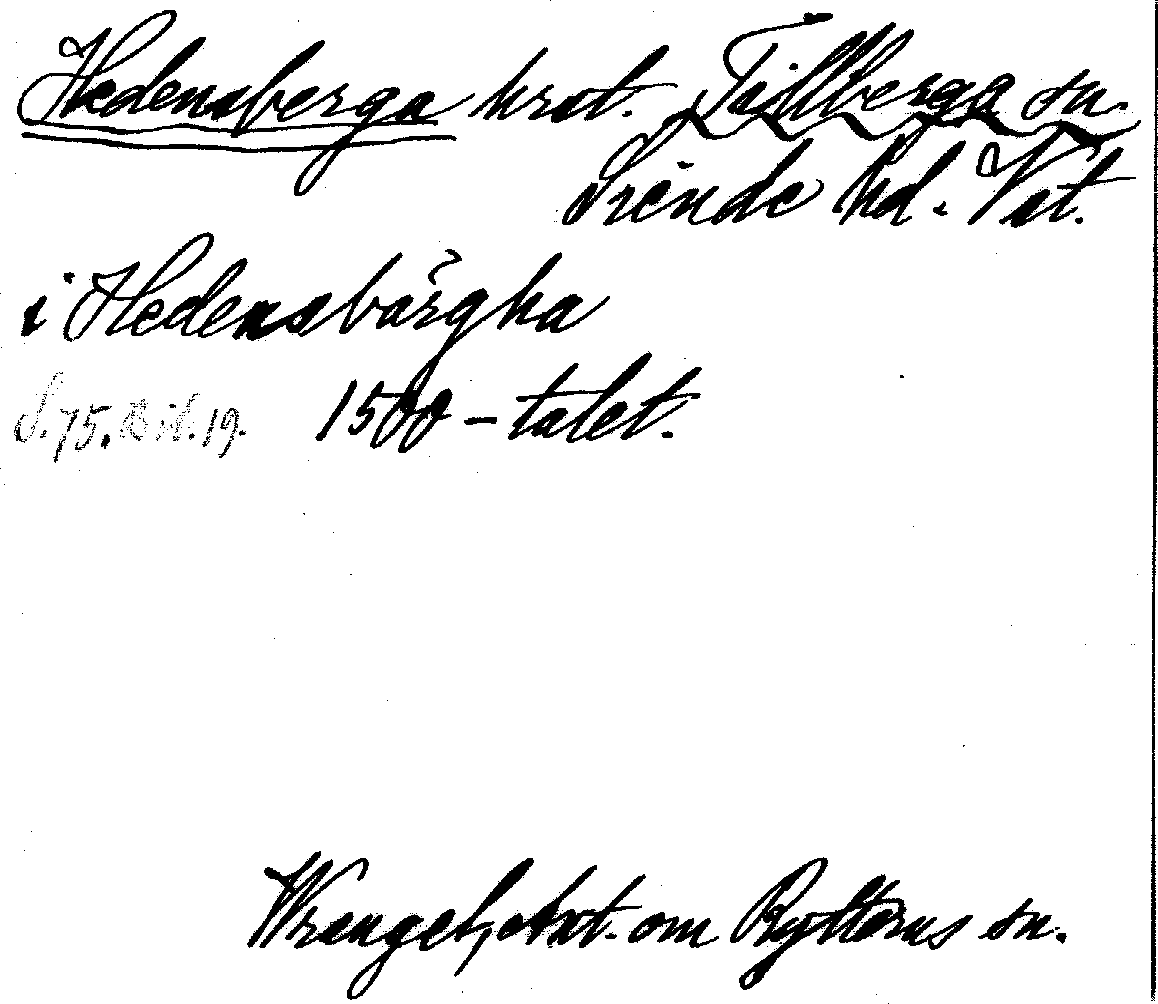 Hedensberga hrst. Tillberga sn.
Siende hd. Vst.
i Hedensbärgha
S. 75. Bil. 19. 1500-talet.
Wrangel, Ant. om Rytterns sn.